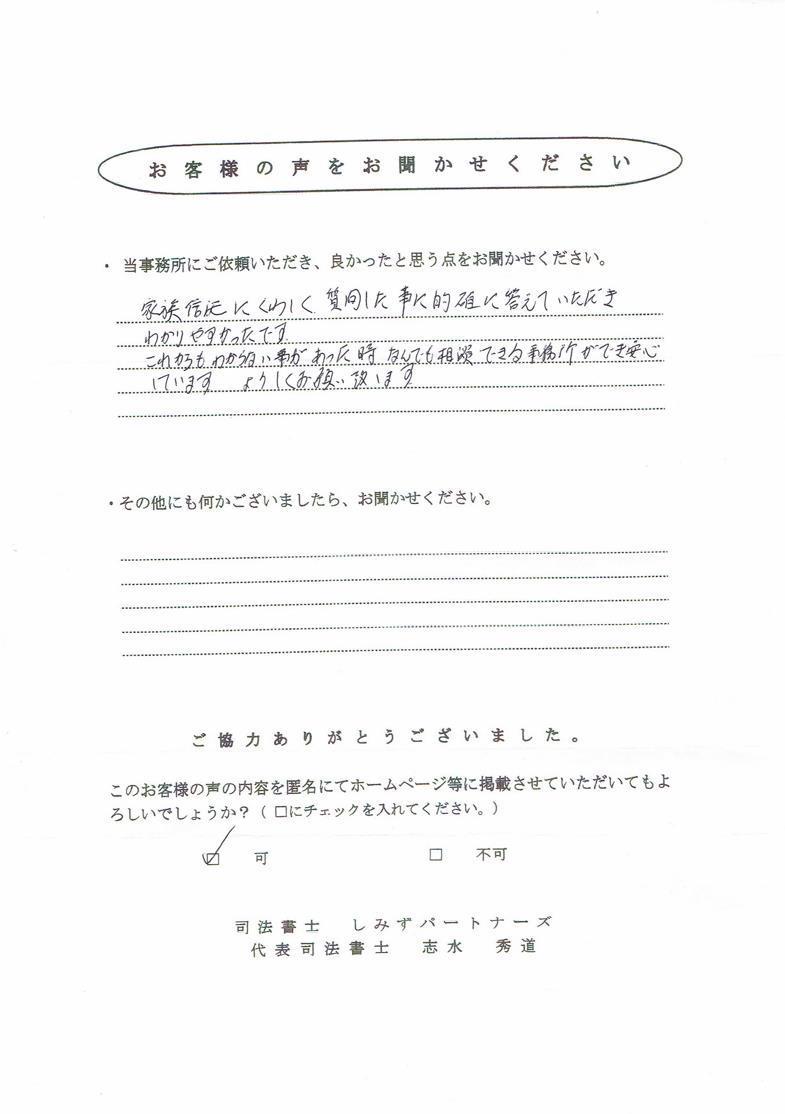 お客様の声をお聞かせください
・ 当事務所にご依頼いただき、良かったと思う点をお聞かせください。
家族信託にくわしく 質問した事に的確に答えていただき
わかりやすかったです
これからもわからない事があった時 なんでも相談できる事務所ができ安心
しています よろしくお願い致します
・その他にも何かございましたら、お聞かせください。
ご協力ありがとうございました。
このお客様の声の内容を匿名にてホームページ等に掲載させていただいてもよ
ろしいでしょうか？（ □にチェックを入れてください。）
☑ 可 □ 不可
司法書士 しみずパートナーズ
代表司法書士 志水 秀道